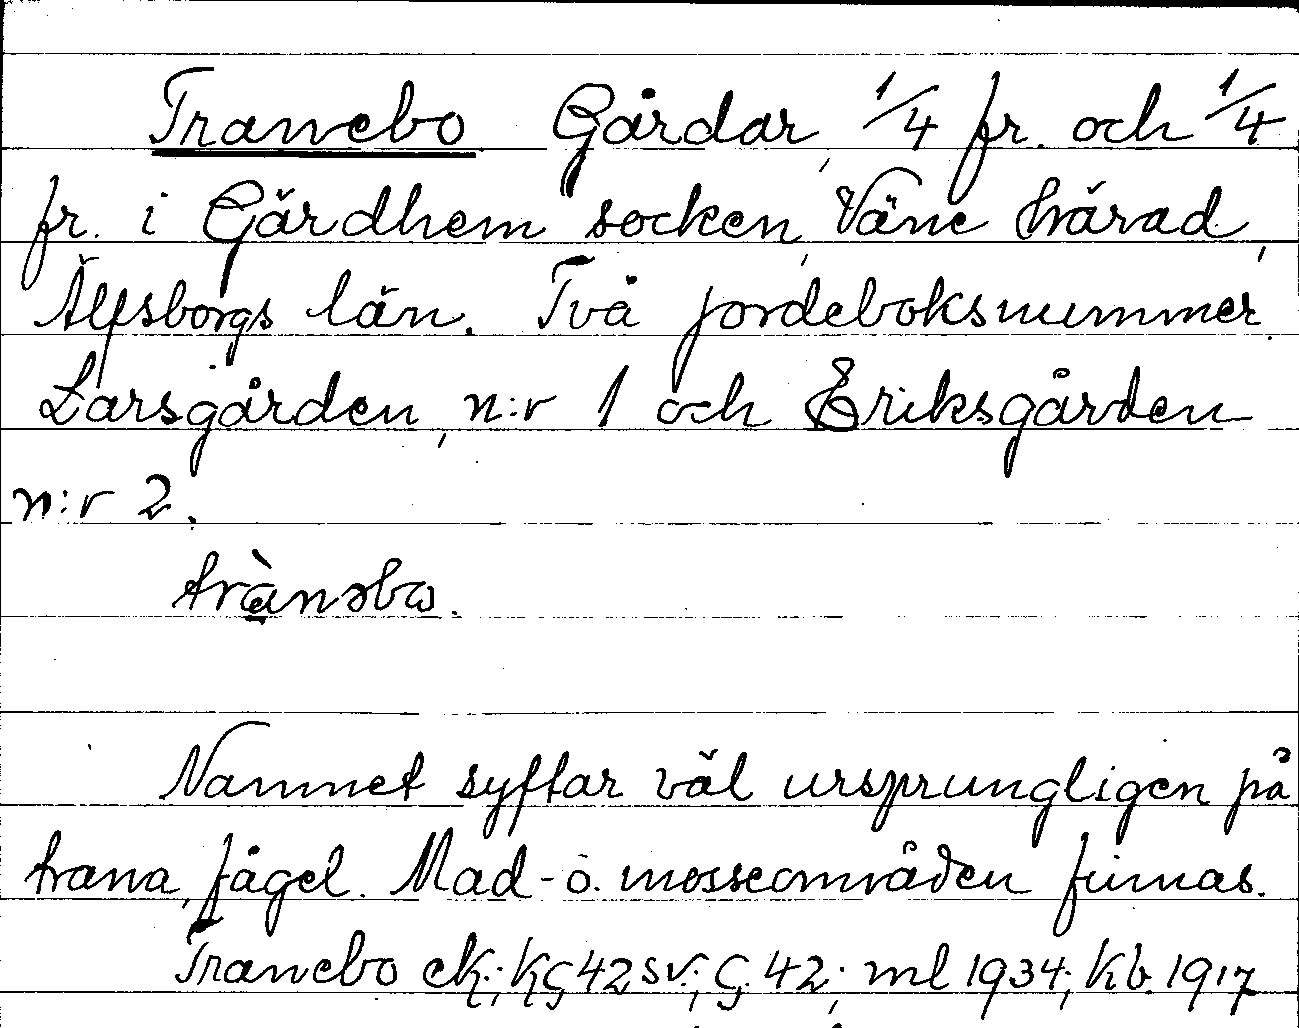 Tranebo Gårdar, 1/4 fr. och 1/4
fr. i Gärdhem socken, Väne härad,
Älfsborgs län. Två jordeboksnummer.
Larsgården, n:r 1 och Eriksgården
n:r 2.
trànəbω.
Namnet syftar väl ursprungligen på
trana, fågel. Mad- o. mosseområden finnas.
Tranebo ek.; kç 42 sv.; ç. 42; ml 1934; kb. 1917